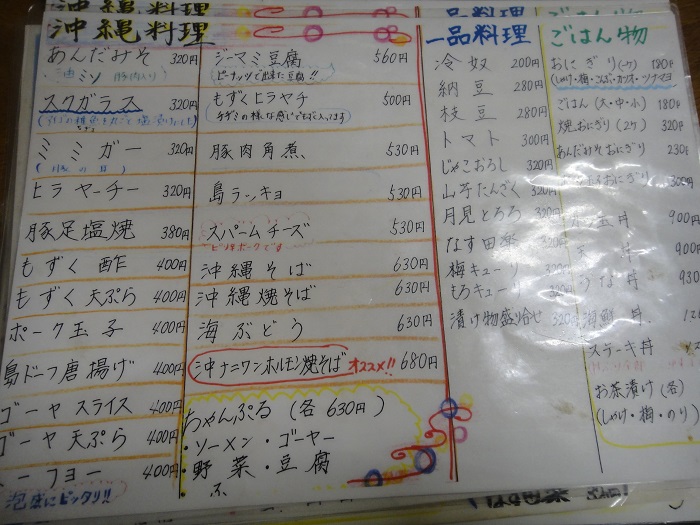 沖縄料理
沖縄料理
あんだみそ 320円
スクガラス 320円
ミミガー 320円
ヒラヤーチー 320円
豚足塩焼 380円
もずく酢 400円
もずく天ぷら 400円
ポーク玉子 400円
島ドーフ唐揚げ 400円
ゴーヤスライス 400円
ゴーヤ天ぷら 400円
ーフヨー 400円
泡盛にピッタリ!!
ジーマミ豆腐 560円
(ピーナッツで出来た豆腐!!)
もずくヒラヤチ 500円
チヂミの様な感じでもずく入ってます
豚肉角煮 530円
島ラッキョ 530円
スパームチーズ 530円
沖縄そば 630円
沖縄焼そば 630円
海ぶどう 630円
沖ナニワンホルモン焼そば オススメ!! 680円
ちゃんぷる (各630円)
・ソーメン・ゴーヤー
・野菜・豆腐
一品料理
冷奴 200円
納豆 280円
枝豆 280円
トマト 300円
じゃこおろし 320円
山芋たんざく 320円
月見とろろ 320円
なす田楽 320円
梅キューリ 320円
もろキューリ 320円
漬け物盛り合せ 320円
ごはん物
おにぎり(一ケ) 180円
(しゃけ・梅・こんぶ・カツオ・ツナマヨ)
ごはん (大・中・小) 180円
焼おにぎり (2ケ) 320円
あんだみそおにぎり 230
おにぎり 300円
玉丼 900円
丼 900
うな丼 930
海鮮丼
ステーキ丼
お茶漬け (各)
(しゃけ・梅・のり)